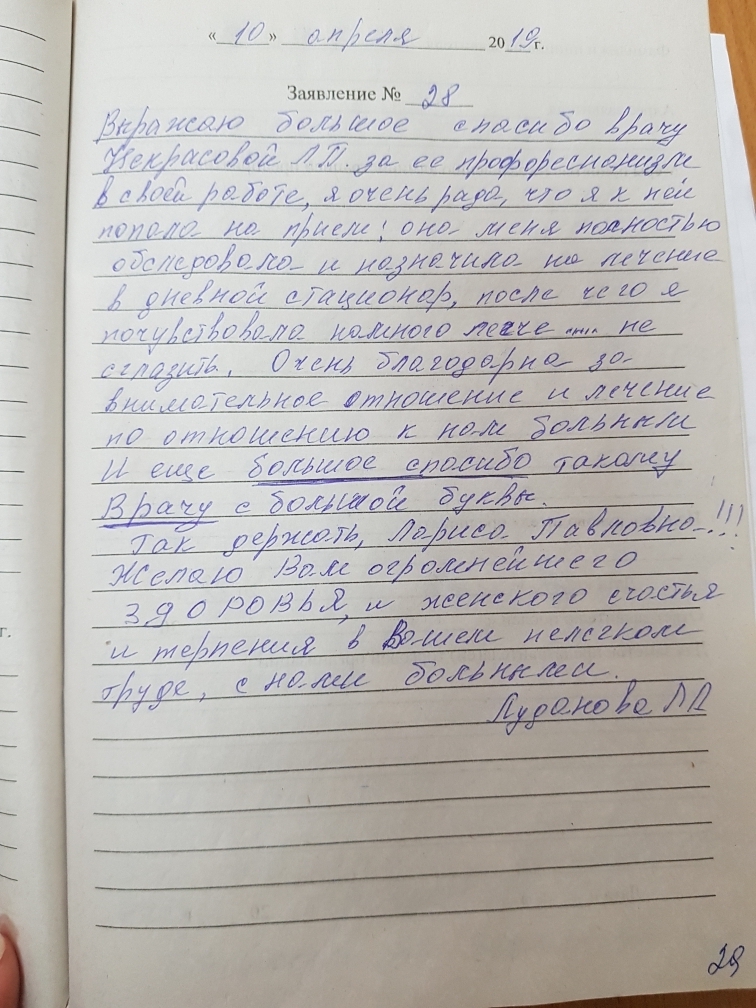 « 10 » апреля 2019 г.
Заявление № 28
Выражаю большое спасибо врачу
Некрасовой Л.П. за ее профоресионализм
в своей работе, я очень рада, что я к ней
попала на прием; она меня полностью
обследовала и назначила на лечение
в дневной стационар, после чего я
почувствовала намного легче не
сглазить. Очень благодарна за
внимательное отношение и лечение
по отношению к нам больным
И еще большое спасибо такому
Врачу с большой буквы.
Так держать, Лариса Павловна!!!
Желаю Вам огромнейшего
ЗДОРОВЬЯ, и женского счастья
и терпения в Вашем нелегком
труде, с нами больными.
Луданова ЛД
г.
29